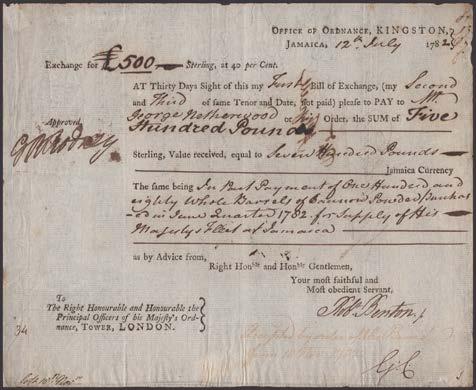 OFFICE OF ORDNANCE, KINGSTON,
JAMAICA, 12th July 1782.
Exchange for £500 Sterling, at 40 per Cent.
AT Thirty Days Sight of this my First Bill of Exchange, (my Second
and Third of same Tenor and Date, not paid) please to PAY to Mr.
George Netherwood or his Order, the SUM of Five
Hundred Pounds
Approved
G B Rodney
Sterling, Value received, equal to Seven Hundred Pounds
Jamaica Currency
The same being In Part Payment of One Hundred and
eighty Whole Barrels of Cannon Powder, Purchas
ed in June Quarter 1782 for Supply of His
Majestys Fleet at Jamaica
as by Advice from,
Right Honble and Honble Gentlemen,
Your most faithful and
Most obedient Servant,
Benton
To
The Right Honourable and Honourable the
Principal Officers of his Majesty's Ord-
nance, TOWER, LONDON.
34